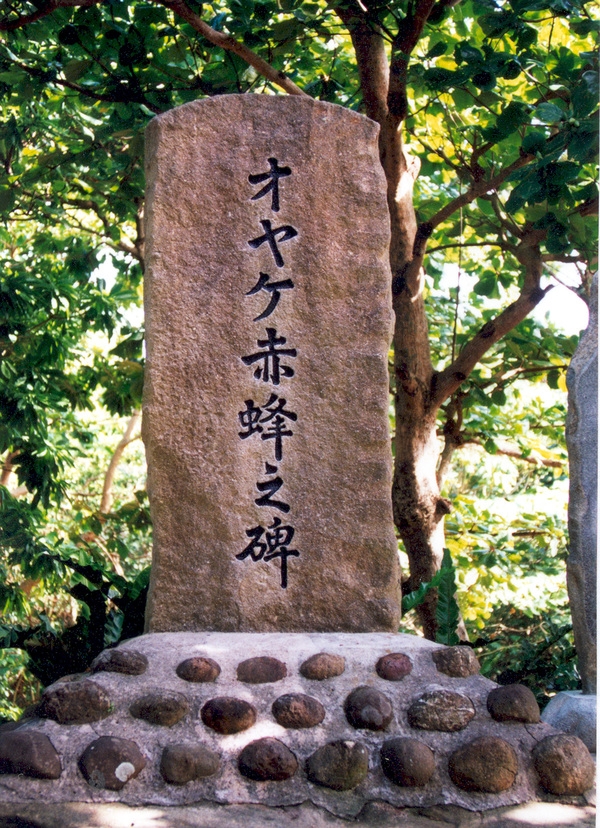 オヤケ赤蜂之碑